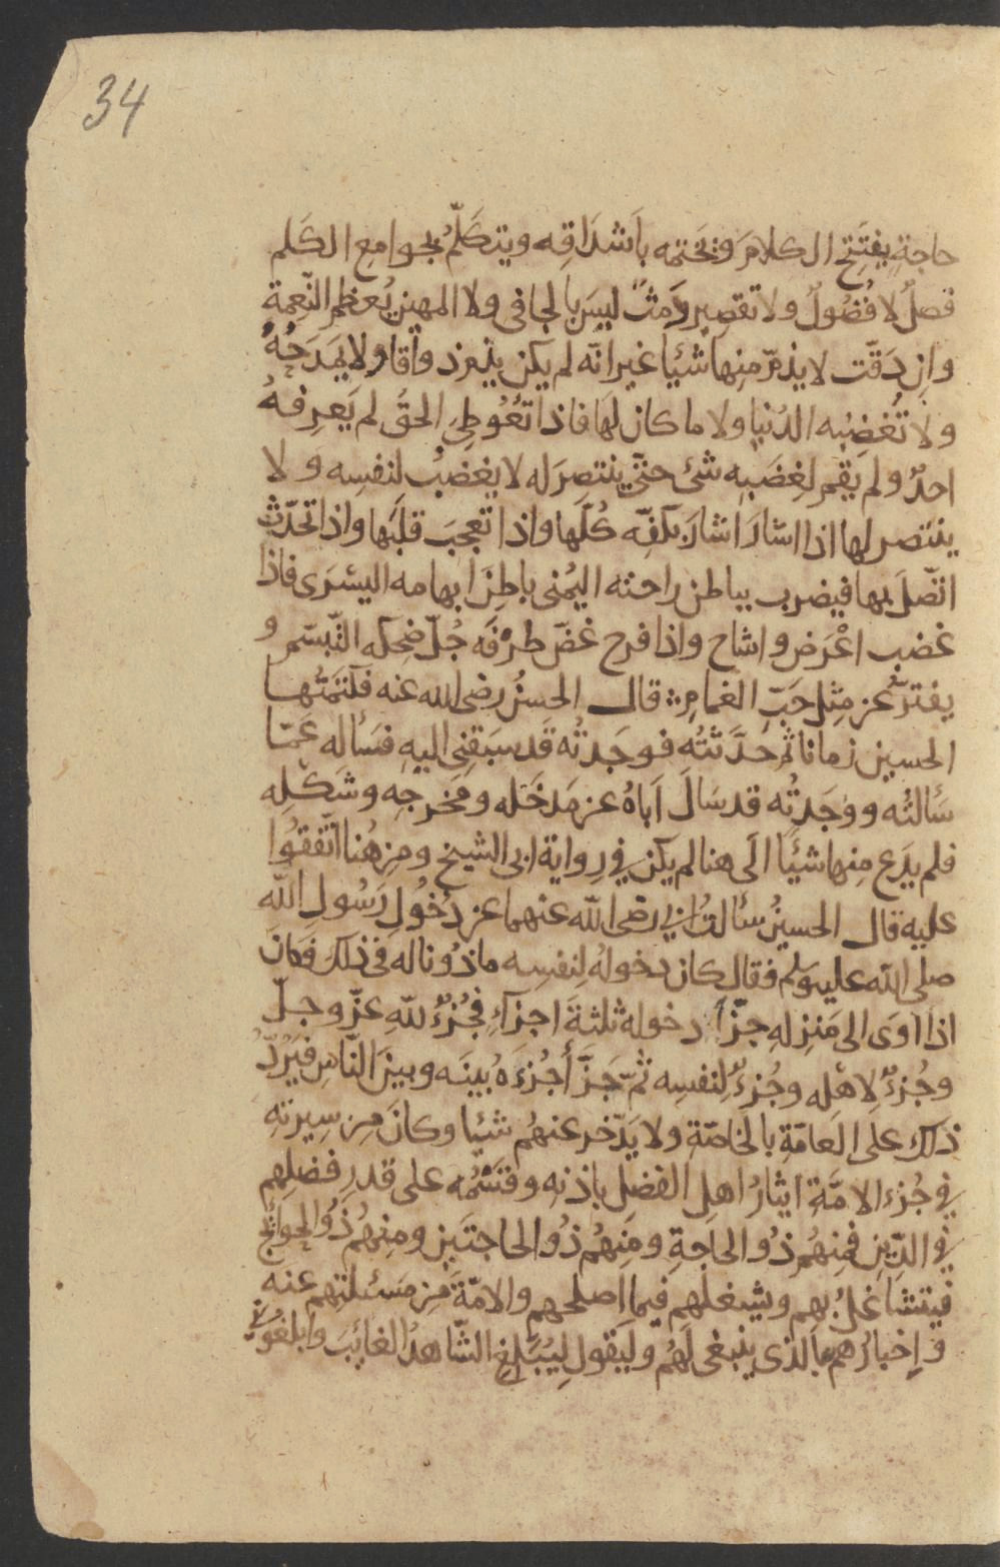 34
حاجةٍ يفتَتِح الكلامَ ويَختمه باَشدَاقِه ويتكَلّمُ بجوامع الكَلم
فصلٌ لا فُضُولٌ ولا تقصير دَمثٌ ليسَ بالجافى ولا المهين يُعظم النّعِمة
وان دَقّت لا يذمّ منِها شيًا غير انّه لم يكن يذم ذواقا ولا يمدَحُهُ
ولا تُغضِبُه الدُنيا ولا ما كان لهَا فاذا تعُوطِى الحقُّ لم يَعرِفهُ
احدٌ ولم يقم لغِضَبِه شئ حتّى ينتصرَ له لا يغضبُ لنفسِه ولا
ينتصر لها اذا اشارَ اشارَ بكفِّه كُلّها واذا تعجبَ قلبَها واذا تحدّث
اتّصلَ بها فيضرب بباطن راحته اليُمنى باطِنَ ابهامه اليسْرَى فاذا
غضب اعْرَض واشاح واذا فرح غضّ طرْفَه جُلّ ضِحكه التّبسّم و
يفترّ عن مِثِل حَبّ الغمامِ قال الحسنُ رضى الله عنه فكتمَتُها
الحسين زمانا ثم حَدَّثتُه فوجَدتُه قد سبَقِنى اليهِ فسَاله عَمّا
سَالتُه ووَجَدتُه قد سَالَ اَباهُ عن مَدخَله ومَخرجِه وشَكلِه
فلم يدَع مِنها شيًا الَى هنا لم يكن فى رِواية ابى الشيخ ومِن هُنا اتّفقُوا
عليه قال الحسينُ سالتُ ابى رضى الله عنهما عن دُخُولِ رَسُولِ اللهِ
صلى الله عليه وسَلم فقال كان دخولهُ لنِفسِه ماذُونا له فى ذلك فكان
اذا اوَى الى مَنزِلهِ جزّاَ دخوله ثلثةَ اجزآءٍ فجُزءٌ لله عزّ وجلّ
وجُزءٌ لاهْله وجُزءٌ لنفسِه ثمّ جَزّأَ جُزءَهُ بينَه وبينَ النّاسِ فيَرُدّ
ذلك علَى العامّةِ بالخاصّة ولا يَدّخر عنهُم شيًا وكانَ مِن سِيرتِهِ
فى جُزءِ الامّةِ ايثارُ اهلِ الفضلِ باذنهِ وقَسْمُه على قدرِ فضلِهم
فى الدّينِ فمِنهُم ذُو الحاجةِ ومِنهُم ذُو الحاجتَين ومنِهُم ذُوُ الحوائج
فيتشاغلُ بهم ويشغلهم فيما اصلحهم والامّةَ مِن مَسئلتِهم عنه
واِخبارُهم بالذى ينبغى لَهُم ويَقول لِيُبَلّغِ الشّاهدُ الغائِبَ وابلغُونى